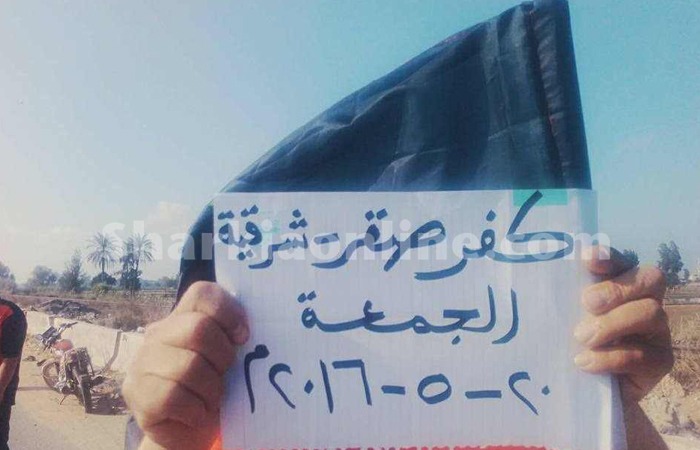 كفر صقر - شرقية
Sharkiaonline.com
الجمعة
٢٠ - ٥ - ٢٠١٦ م